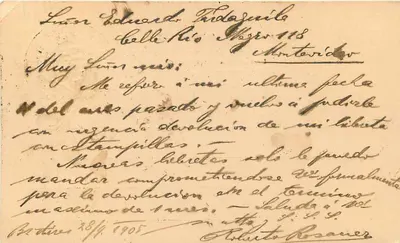 Señor Eduardo
Calle Rio Negro 118
Montevideo
Muy Señor mio:
Me refiero á mi ultima fecha
del mes pasado y vuelvo á pedirle
con urgencia devolucion de mi libreta
con estampillas. —
Nuevas libretas solo le puedo
mandar comprometiendose Vd formalmente
para la devolucion en el termino
maximo de 1 mes. — Saluda á Vd
S. S. S.
Bs Aires 1905 Roberto Rosauer